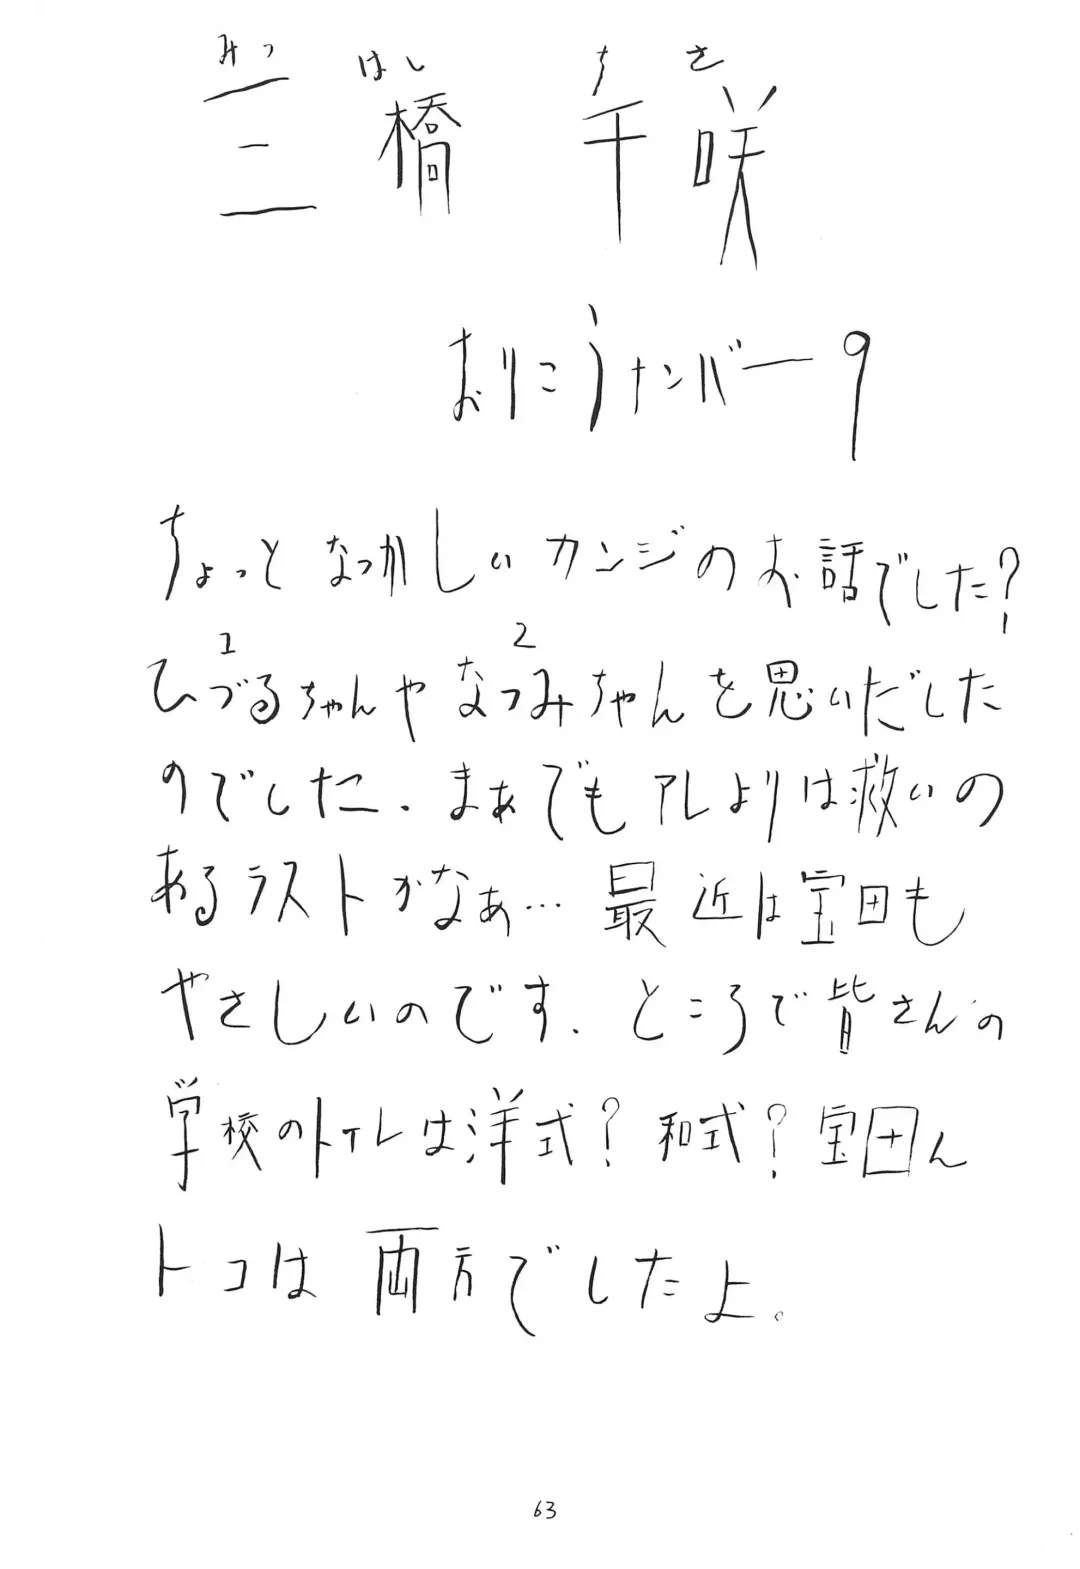 みつ はし ち さ
三 橋 千 咲
おりこうナンバー9
ちょっと なつかしい カンジの お話でした?
1 2
ひづるちゃんや なつみちゃんを思いだした
のでした. まぁでもアレよりは救いの
あるラストかなぁ… 最近は宝田も
やさしいのです. ところで皆さんの
学校のトイレは洋式? 和式? 宝田ん
トコは 両方でしたよ。
63